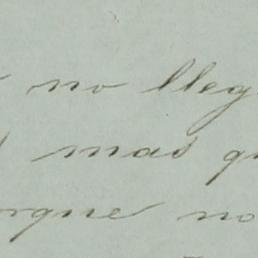 no lleg
mas qu
orque no